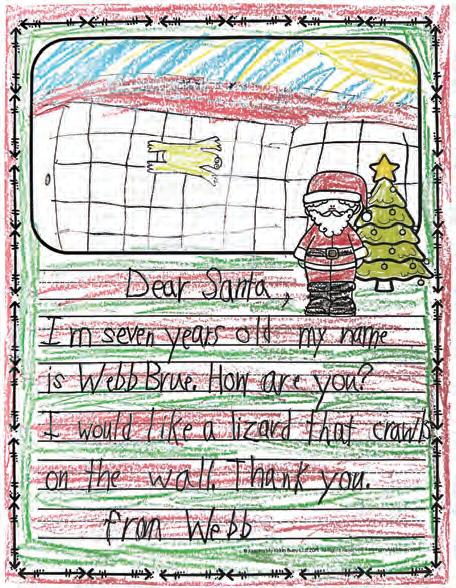 Dear Santa,
I'm seven years old my name
is Webb Brue. How are you?
I would like a lizard that crawls
on the wall. Thank you.
from Webb